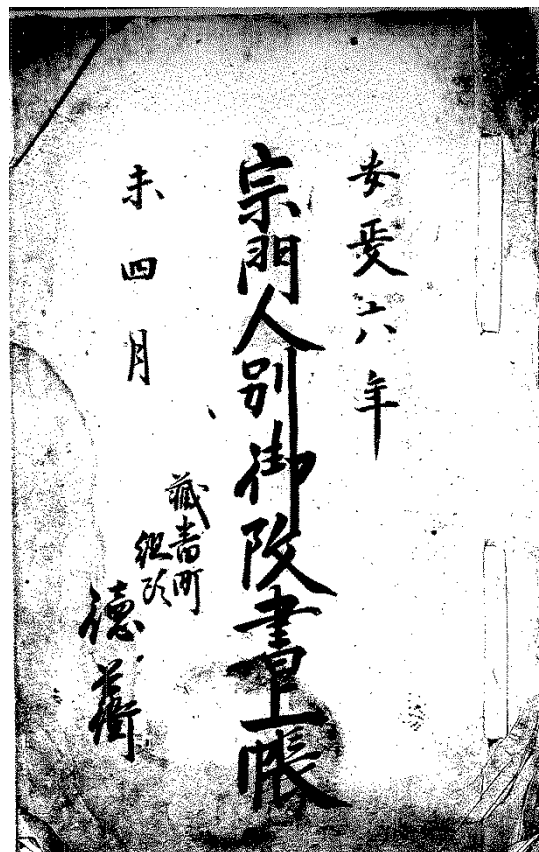 安政六年
宗門人別御改書上帳
未四月
藏書町
組頭
德兵衛